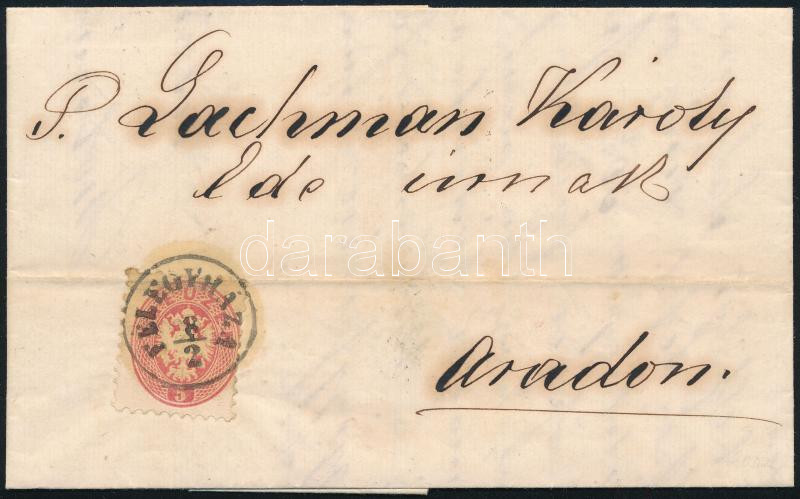 P. Lachman Károly
Ede úrnak
darabanth
FÉLEGYHÁZA
8
2
5
Aradon.